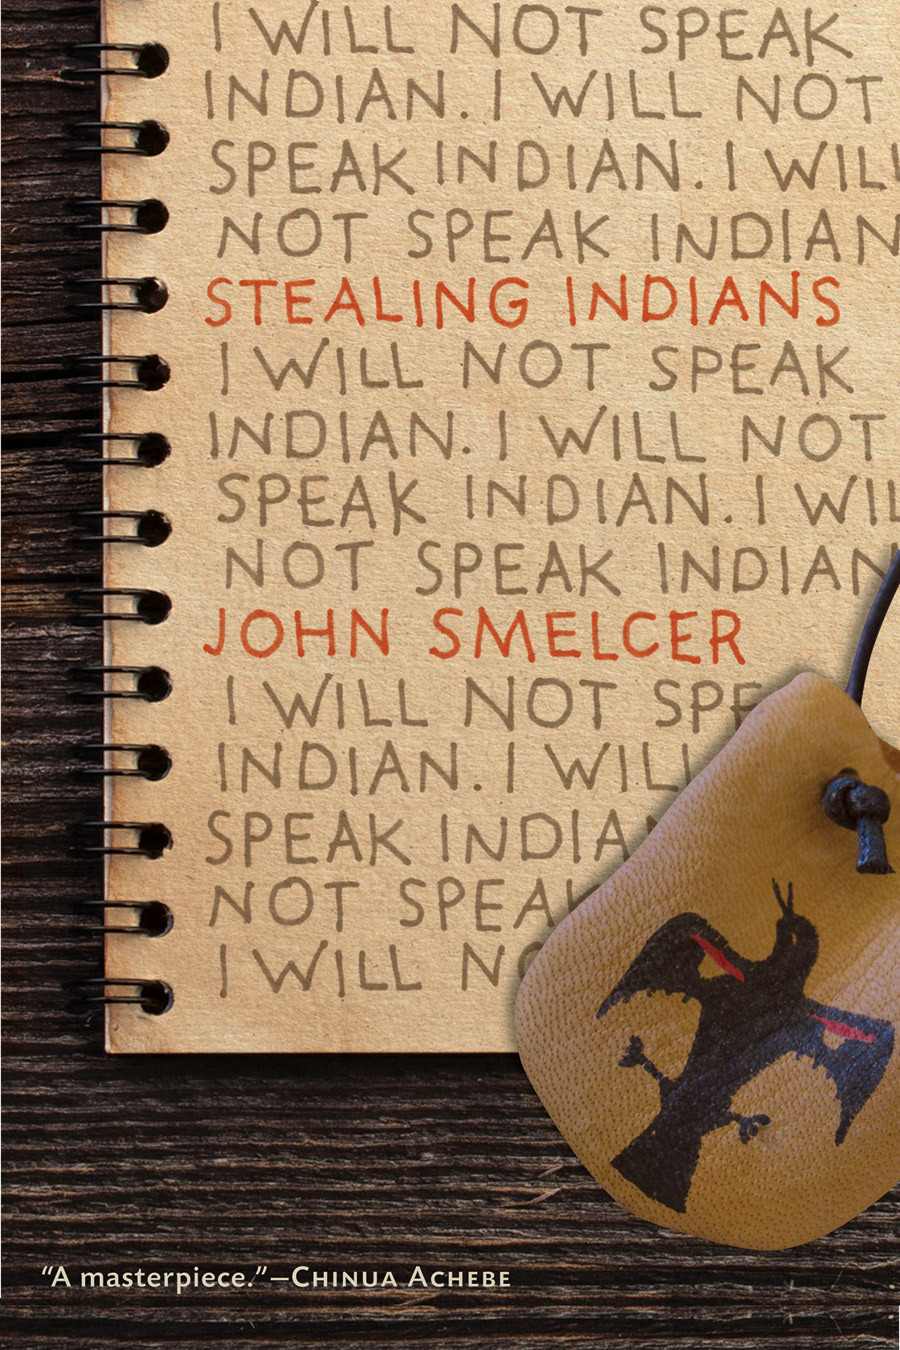 I WILL NOT SPEAK
INDIAN. I WILL NOT
SPEAK INDIAN. I WILL
NOT SPEAK INDIAN
STEALING INDIANS
I WILL NOT SPEAK
INDIAN. I WILL NOT
SPEAK INDIAN. I WIL
NOT SPEAK INDIAN
JOHN SMELCER
I WILL NOT SPE
INDIAN. I WILL
SPEAK INDIAN
NOT SPEAK
I WILL NO
“A masterpiece.”—CHINUA ACHEBE